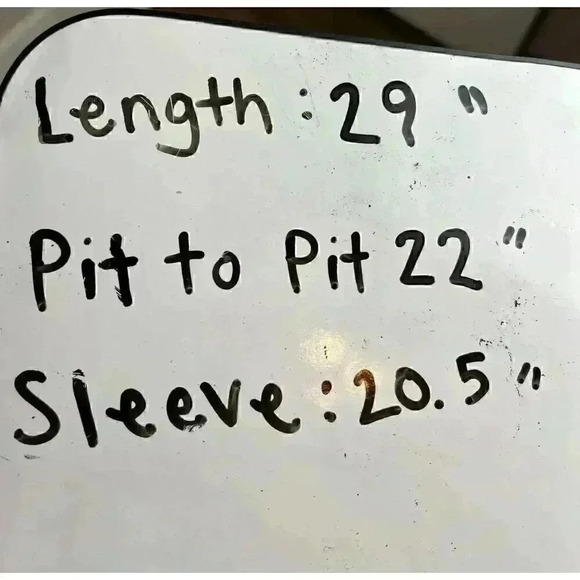 Length: 29"
Pit to Pit 22"
Sleeve: 20.5"